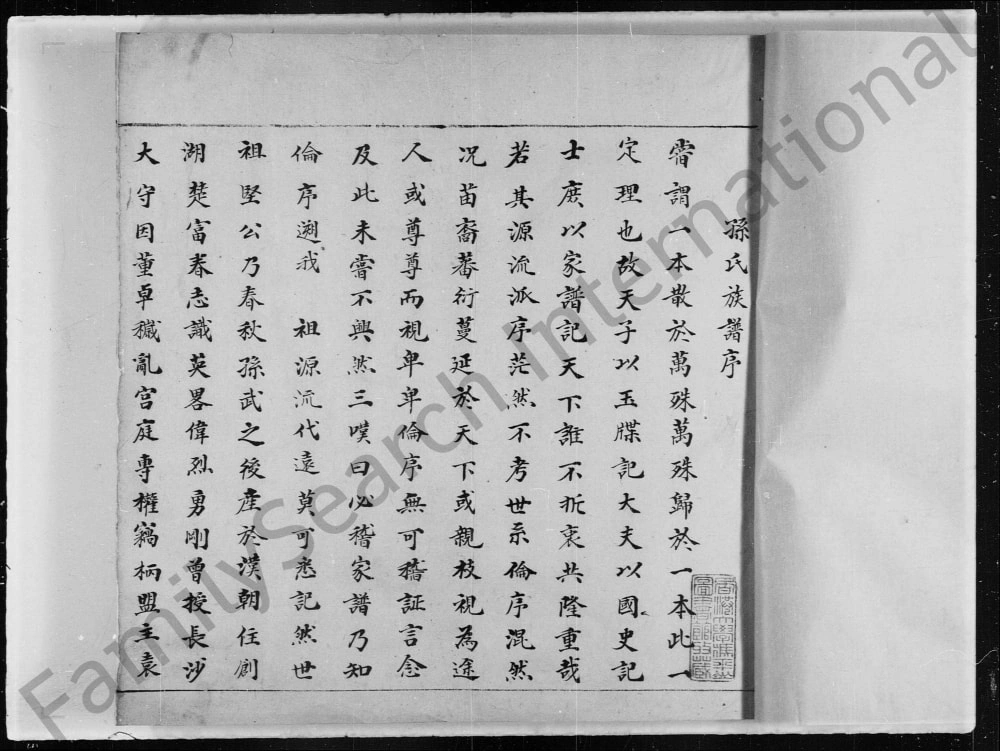 孫氏族譜序
嘗謂一本散於萬殊萬殊歸於一本此一
定理也故天子以玉牒記大夫以國史記
士庶以家譜記天下誰不折衷共隆重哉
若其源流派序茫然不考世系倫序混然
况苗裔蕃衍蔓延於天下或親枝視為途
人或尊尊而視卑卑倫序無可稽証言念
及此未嘗不興然三嘆曰必稽家譜乃知
倫序遡我 祖源流代遠莫可悉記然世
祖堅公乃春秋孫武之後産於漢朝任創
湖楚富春志識英畧偉烈勇剛曾授長沙
大守因董卓穢亂宫庭專權竊柄盟主袁
FamilySearch International